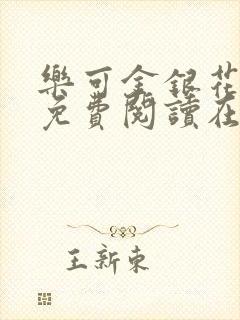 樂可金銀花
免費閱讀在
王新東